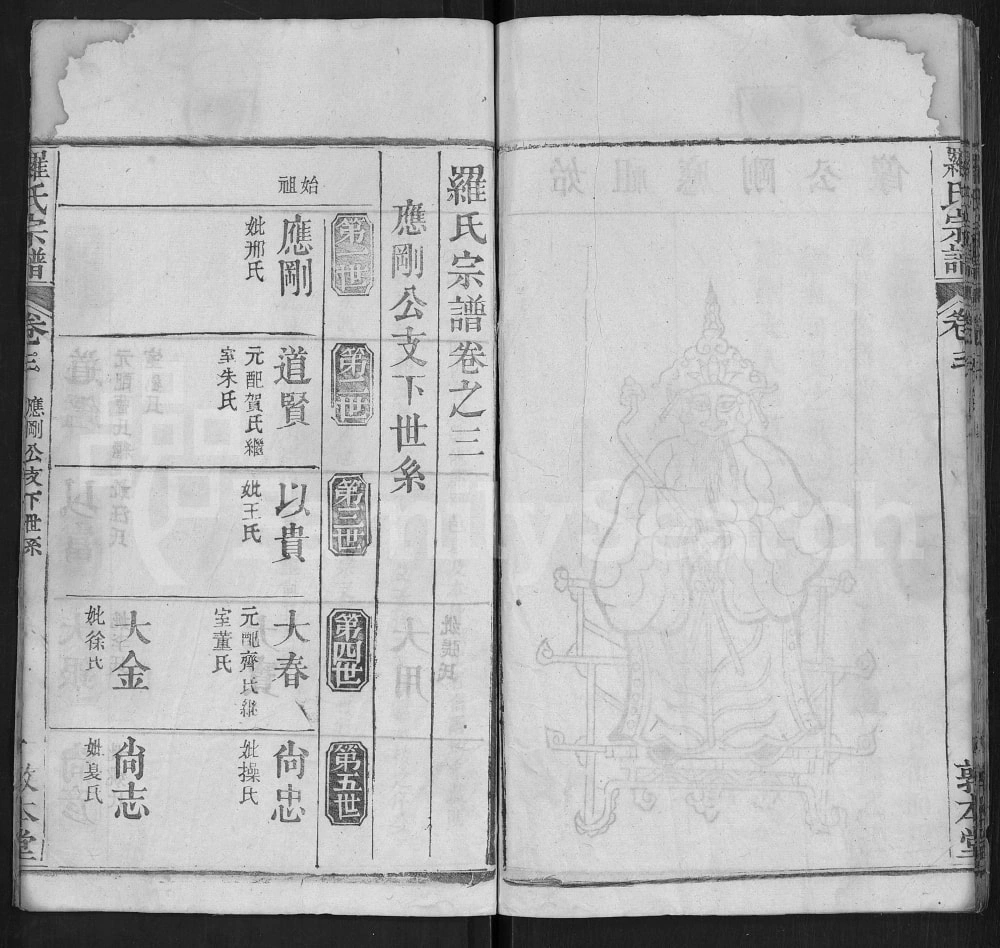 羅氏宗譜
卷三
敦本堂
羅氏宗譜卷之三
應剛公支下世系
第一世
始祖
應剛
妣邢氏
第二世
道賢
元配賀氏繼
室朱氏
第三世
以貴
妣王氏
第四世
大春
元配齊氏繼
室董氏
大金
妣徐氏
第五世
尙忠
妣操氏
尙志
妣夏氏
羅氏宗譜
卷三
應剛公支下世系
敦本堂